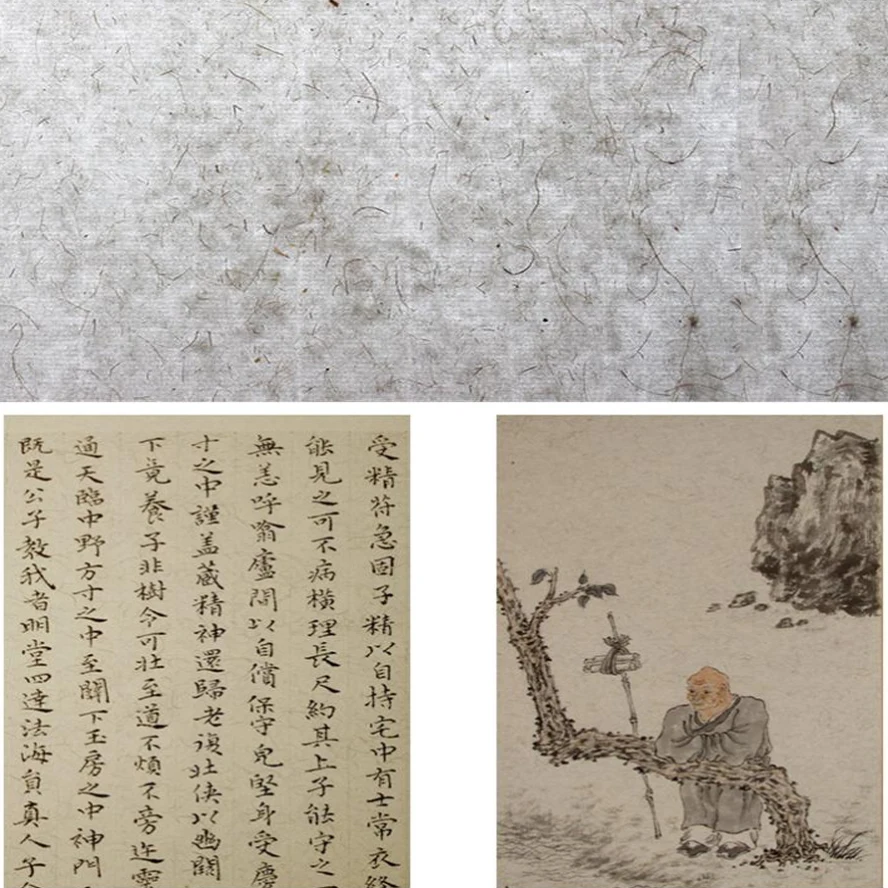 受精符急固子精以自持宅中有士常衣絳
能見之可不病橫理長尺約其上子能守之
無恙呼噏廬間以自償保守皃堅身受慶
寸之中謹盖蔵精神還歸老復壯俠以幽闕
下竟養子非樹令可壯至道不煩不旁迕靈
通天臨中野方寸之中至關下玉房之中神門
既是公子教我者明堂四達法海員真人子